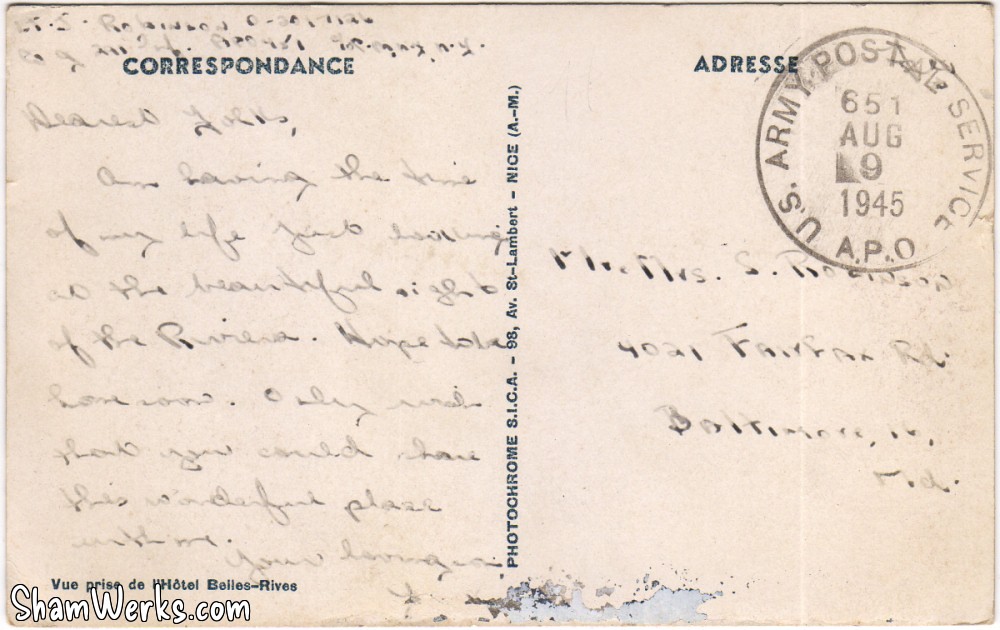 CORRESPONDANCE
ADRESSE
Dearest Folks,
Am having the time
of my life just looking
at the beautiful sights
of the Riviera. Hope to be
home soon. Only wish
that you could share
this wonderful place
with me.
Your loving son,
Vue prise de l'Hôtel Belles-Rives
PHOTOCHROME S.I.C.A. - 98, Av. St-Lambert - NICE (A.-M.)
U.S. ARMY POSTAL SERVICE
651
AUG
9
1945
A.P.O
Mr. Mrs. S. Robinson
4021 Fairfax Rd.
Baltimore, 16,
Md.
ShamWerks.com